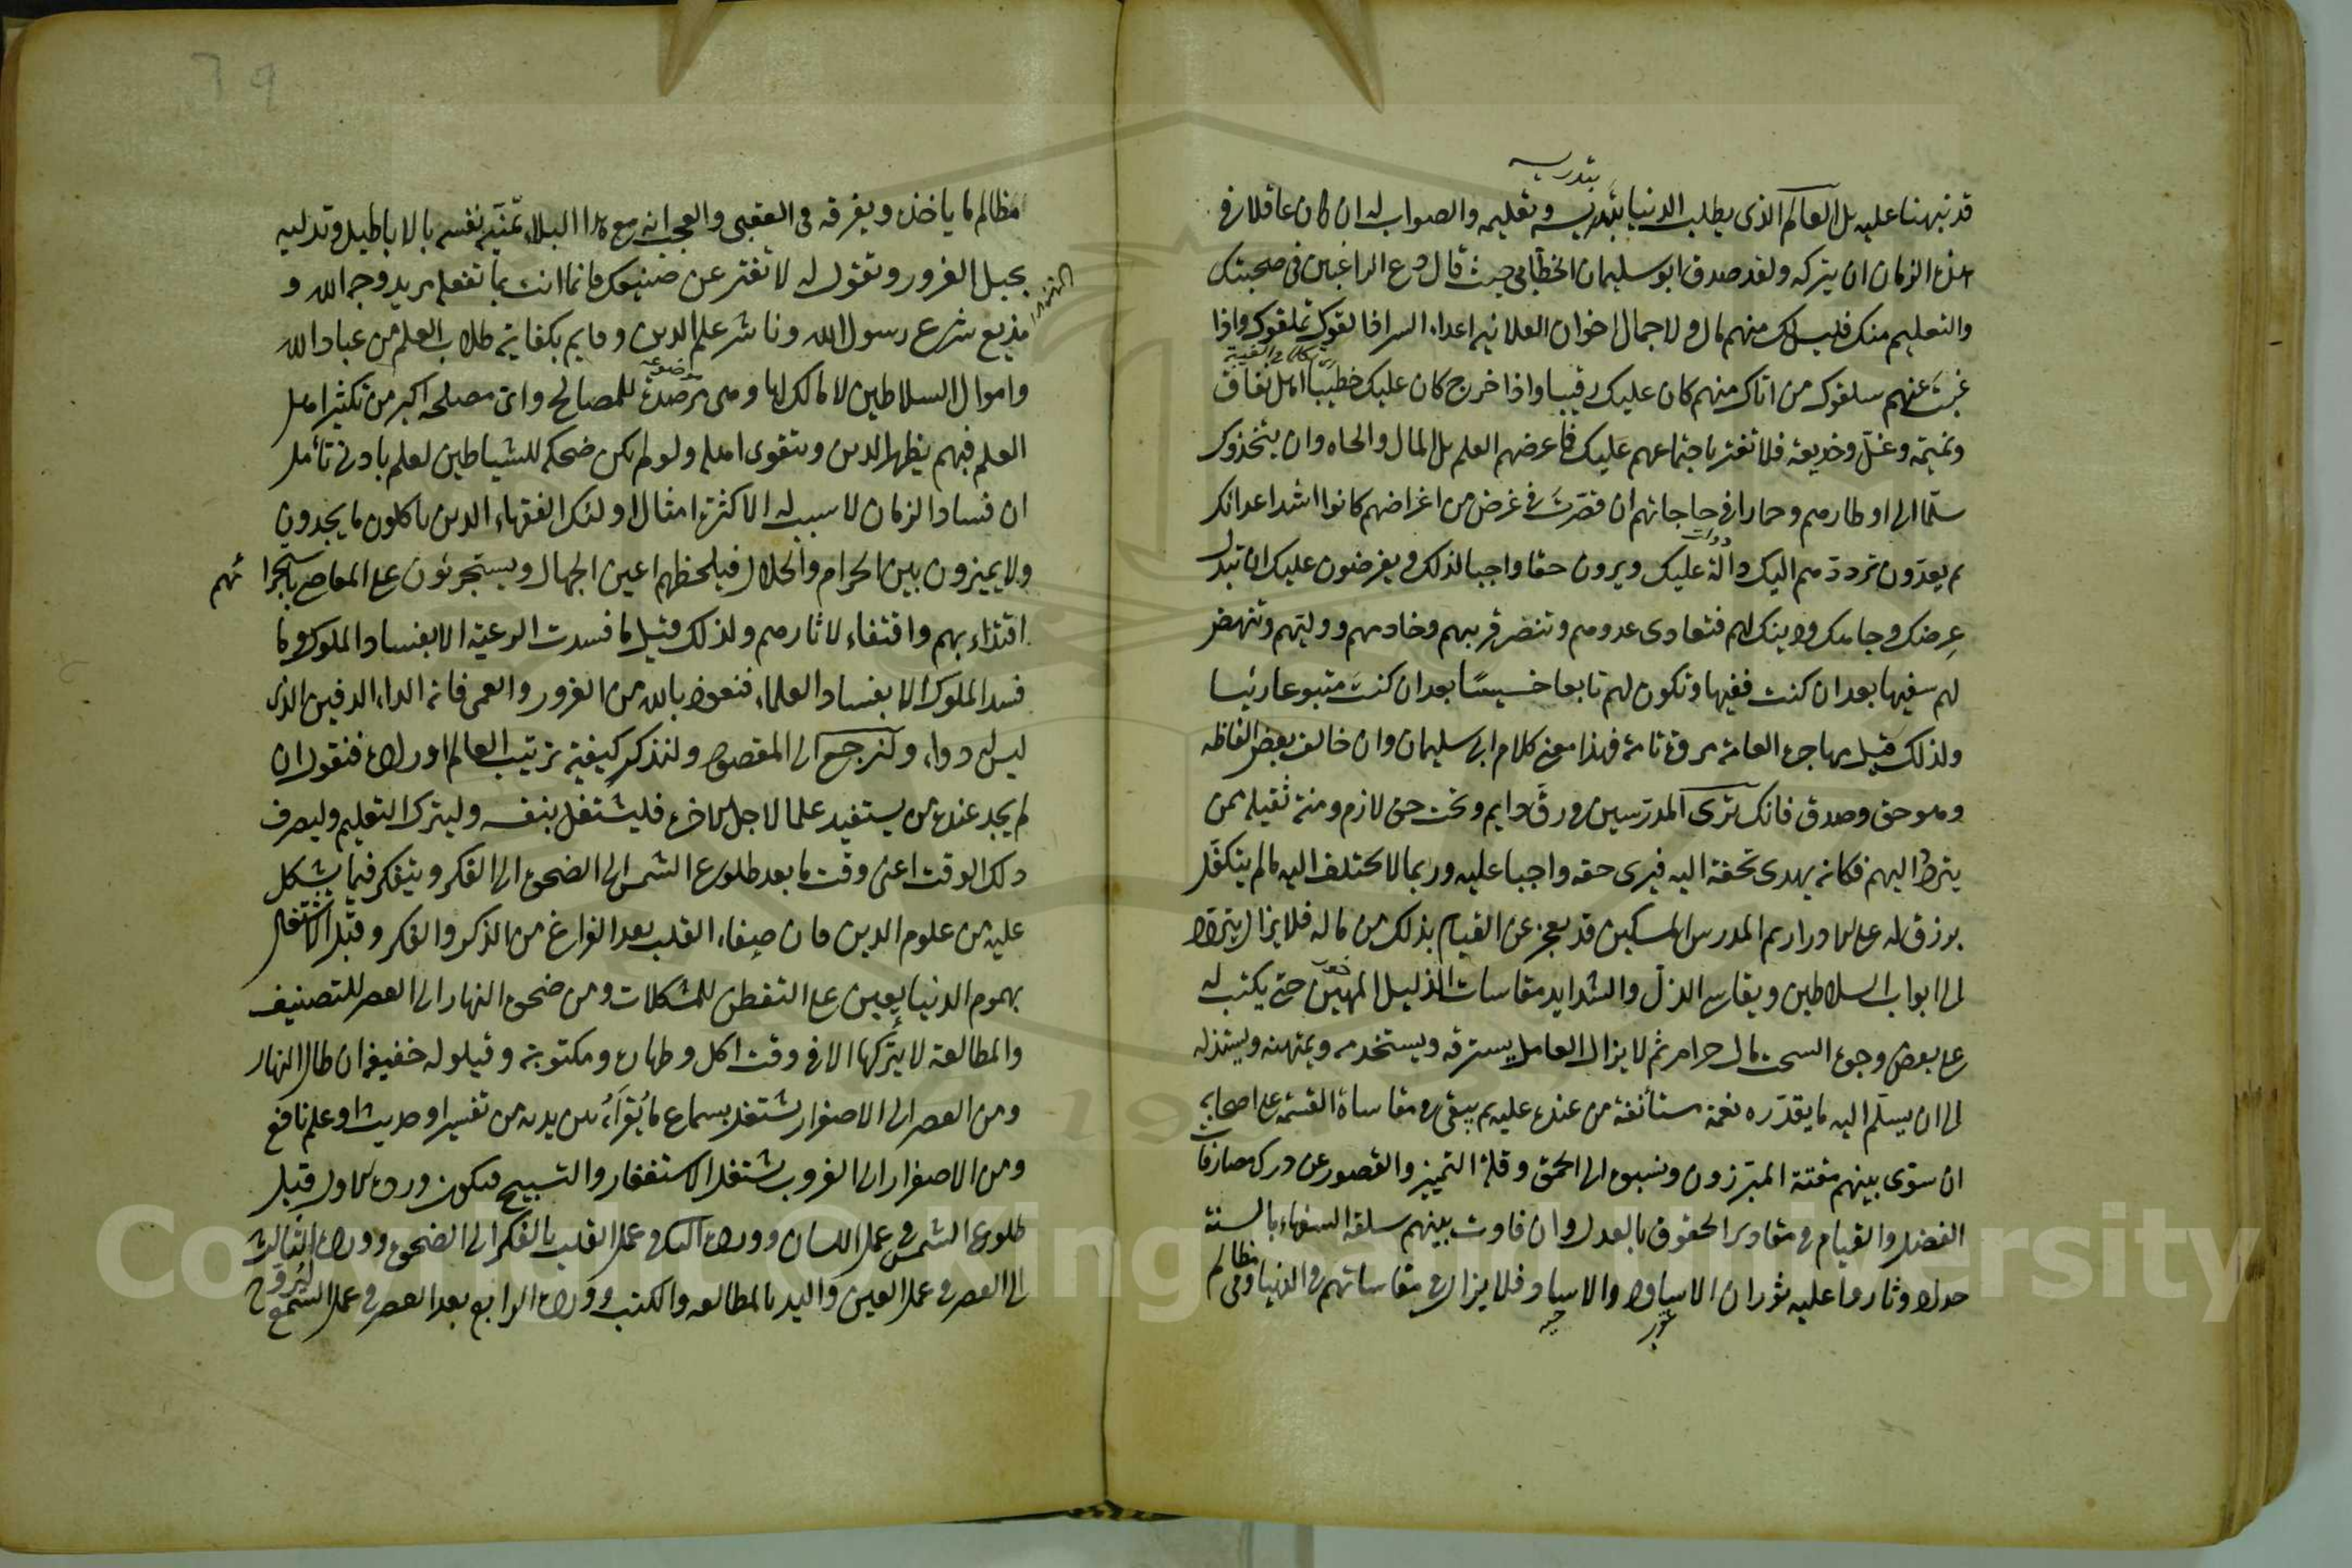 بتدريسه
قد نبهنا عليه بل العالم الذى يطلب الدنيا بتدريسه وتعليمه والصواب له ان كان عاقلا فى
هذه الزمان ان يتركه ولقد صدق ابو سليمان الخطابى حيث قال دع الراغبين فى صحبتك
والتعليم منك فليس لك منهم مال ولا جمال اخوان العلانيه اعداء السر اذا لقوك تملقوك واذا
غبت عنهم سلقوك من اتاك منهم كان عليك رقيبا واذا خرج كان عليك خطيبا اهل نفاق
ونميمة وغل وخديعة فلا تغتر باجتماعهم عليك فما غرضهم العلم بل المال والجاه وان يتخذوك
سلما الى اوطارهم وحمارا فى حاجاتهم ان قصرت فى غرض من اغراضهم كانوا اشد اعدائك
ثم يعدون ترددهم اليك دالة عليك ويرون حقا واجبا لذلك ويفرضون عليك ان تبذل
عرضك وجاهك ودينك لهم فتعادى عدوهم وتنصر قريبهم وخادمهم ووليهم وتنهض
لهم سفيها بعد ان كنت فقيها وتكون لهم تابعا خسيسا بعد ان كنت متبوعا رئيسا
ولذلك قيل مهاجرة العامة مروة تامة فهذا معنى كلام ابى سليمان وان خالف بعض الفاظه
وهو حق وصدق فانك ترى المدرسين فى رق دايم وتحت حق لازم ومنة ثقيله ممن
يتردد اليهم فكانه يهدى تحفة اليه فيرى حقه واجبا عليه وربما لا يختلف اليه ما لم يتكفل
برزق له على الادرار ثم المدرس المسكين قد يعجز عن القيام بذلك من ماله فلا يزال يتردد
الى ابواب السلاطين ويقاسى الذل والشدايد مقاسات الذليل المهين حتى يكتب له
على بعض وجوه السحت مال حرام ثم لا يزال العامل يسترقه ويستخدمه ويمتهنه ويستذله
الى ان يسلم اليه ما يقدره نعمة مستأنفة من عنده عليه ثم يبقى فى مقاساة القسمة على اصحابه
ان سوى بينهم مقته المبرزون ونسبوه الى الحمق وقلة التمييز والقصور عن درك مصارفات
الفضل والقيام فى مقادير الحقوق بالعدل وان فاوت بينهم سلقه السفهاء بالسنة
حداد وثاروا عليه ثوران الاساود والاساد فلا يزال فى مقاساتهم فى الدنيا وفى مظالم
مظالم ما ياخذه ويفرقه فى العقبى والعجب انه مع هذا البلاء تمنيه نفسه بالاباطيل وتدليه
بحبل الغرور وتقول له لا تفتر عن صنيعك فانما انت بما تفعله مريد وجه الله و
مذيع شرع رسول الله وناشر علم الدين وقايم بكفاية طلاب العلم من عباد الله
واموال السلاطين لا مالك لها وهى مرصدة للمصالح واى مصلحة اكبر من تكثير اهل
العلم فبهم يظهر الدين ويتقوى اهله ولو لم يكن ضحكه للشياطين لعلم بادنى تأمل
ان فساد الزمان لا سبب له الا كثرة امثال اولئك الفقهاء الدين ياكلون ما يجدون
ولا يميزون بين الحرام والحلال فيلحظهم اعين الجهال ويستجرئون على المعاصى باستجرائهم
اقتداء بهم واقتفاء لاثارهم ولذلك قيل ما فسدت الرعية الا بفساد الملوك وما
فسد الملوك الا بفساد العلماء فنعوذ بالله من الغرور والعمى فانه الداء الدفين الذى
ليس له دواء ولنرجع الى المقصود ولنذكر كيفية ترتيب العالم اوراده فنقول ان
لم يجد عنده من يستفيد علما لاجل الاخرة فليشتغل بنفسه وليترك التعليم وليصرف
ذلك الوقت اعنى وقت ما بعد طلوع الشمس الى الضحوة الى الفكر ويتفكر فيما يشكل
عليه من علوم الدين فان صفاء القلب بعد الفراغ من الذكر والفكر وقبل الاشتغال
بهموم الدنيا يعين على التفطن للمشكلات ومن ضحوة النهار الى العصر للتصنيف
والمطالعة لا يتركها الا فى وقت اكل وطهارة ومكتوبة وقيلوله خفيفة ان طال النهار
ومن العصر الى الاصفرار يشتغل بسماع ما يقرأ بين يديه من تفسير او حديث او علم نافع
ومن الاصفرار الى الغروب يشتغل الاستغفار والتسبيح فيكون ورده الاول قبل
طلوع الشمس فى عمل اللسان وورده الثانى فى عمل القلب بالفكر الى الضحوة وورده الثالث
الى العصر فى عمل العين واليد بالمطالعه والكتب وورده الرابع بعد العصر فى عمل السمع
ليروح